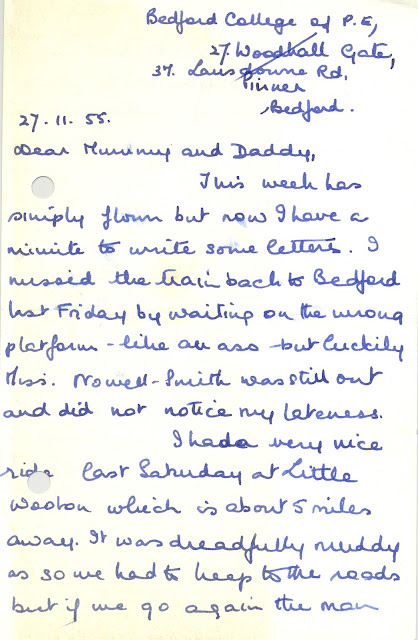 Bedford College of P.E,
27. Woodhall Gate,
37. Lansdowne Rd.
Pinner
Bedford.
27.11.55.
Dear Mummy and Daddy,
This week has
simply flown but now I have a
minute to write some letters. I
missed the train back to Bedford
last Friday by waiting on the wrong
platform - like an ass - but luckily
Miss. Nowell-Smith was still out
and did not notice my lateness.
I had a very nice
ride last Saturday at Little
Wooton which is about 5 miles
away. It was dreadfully muddy
as so we had to keep to the roads
but if we go again the man